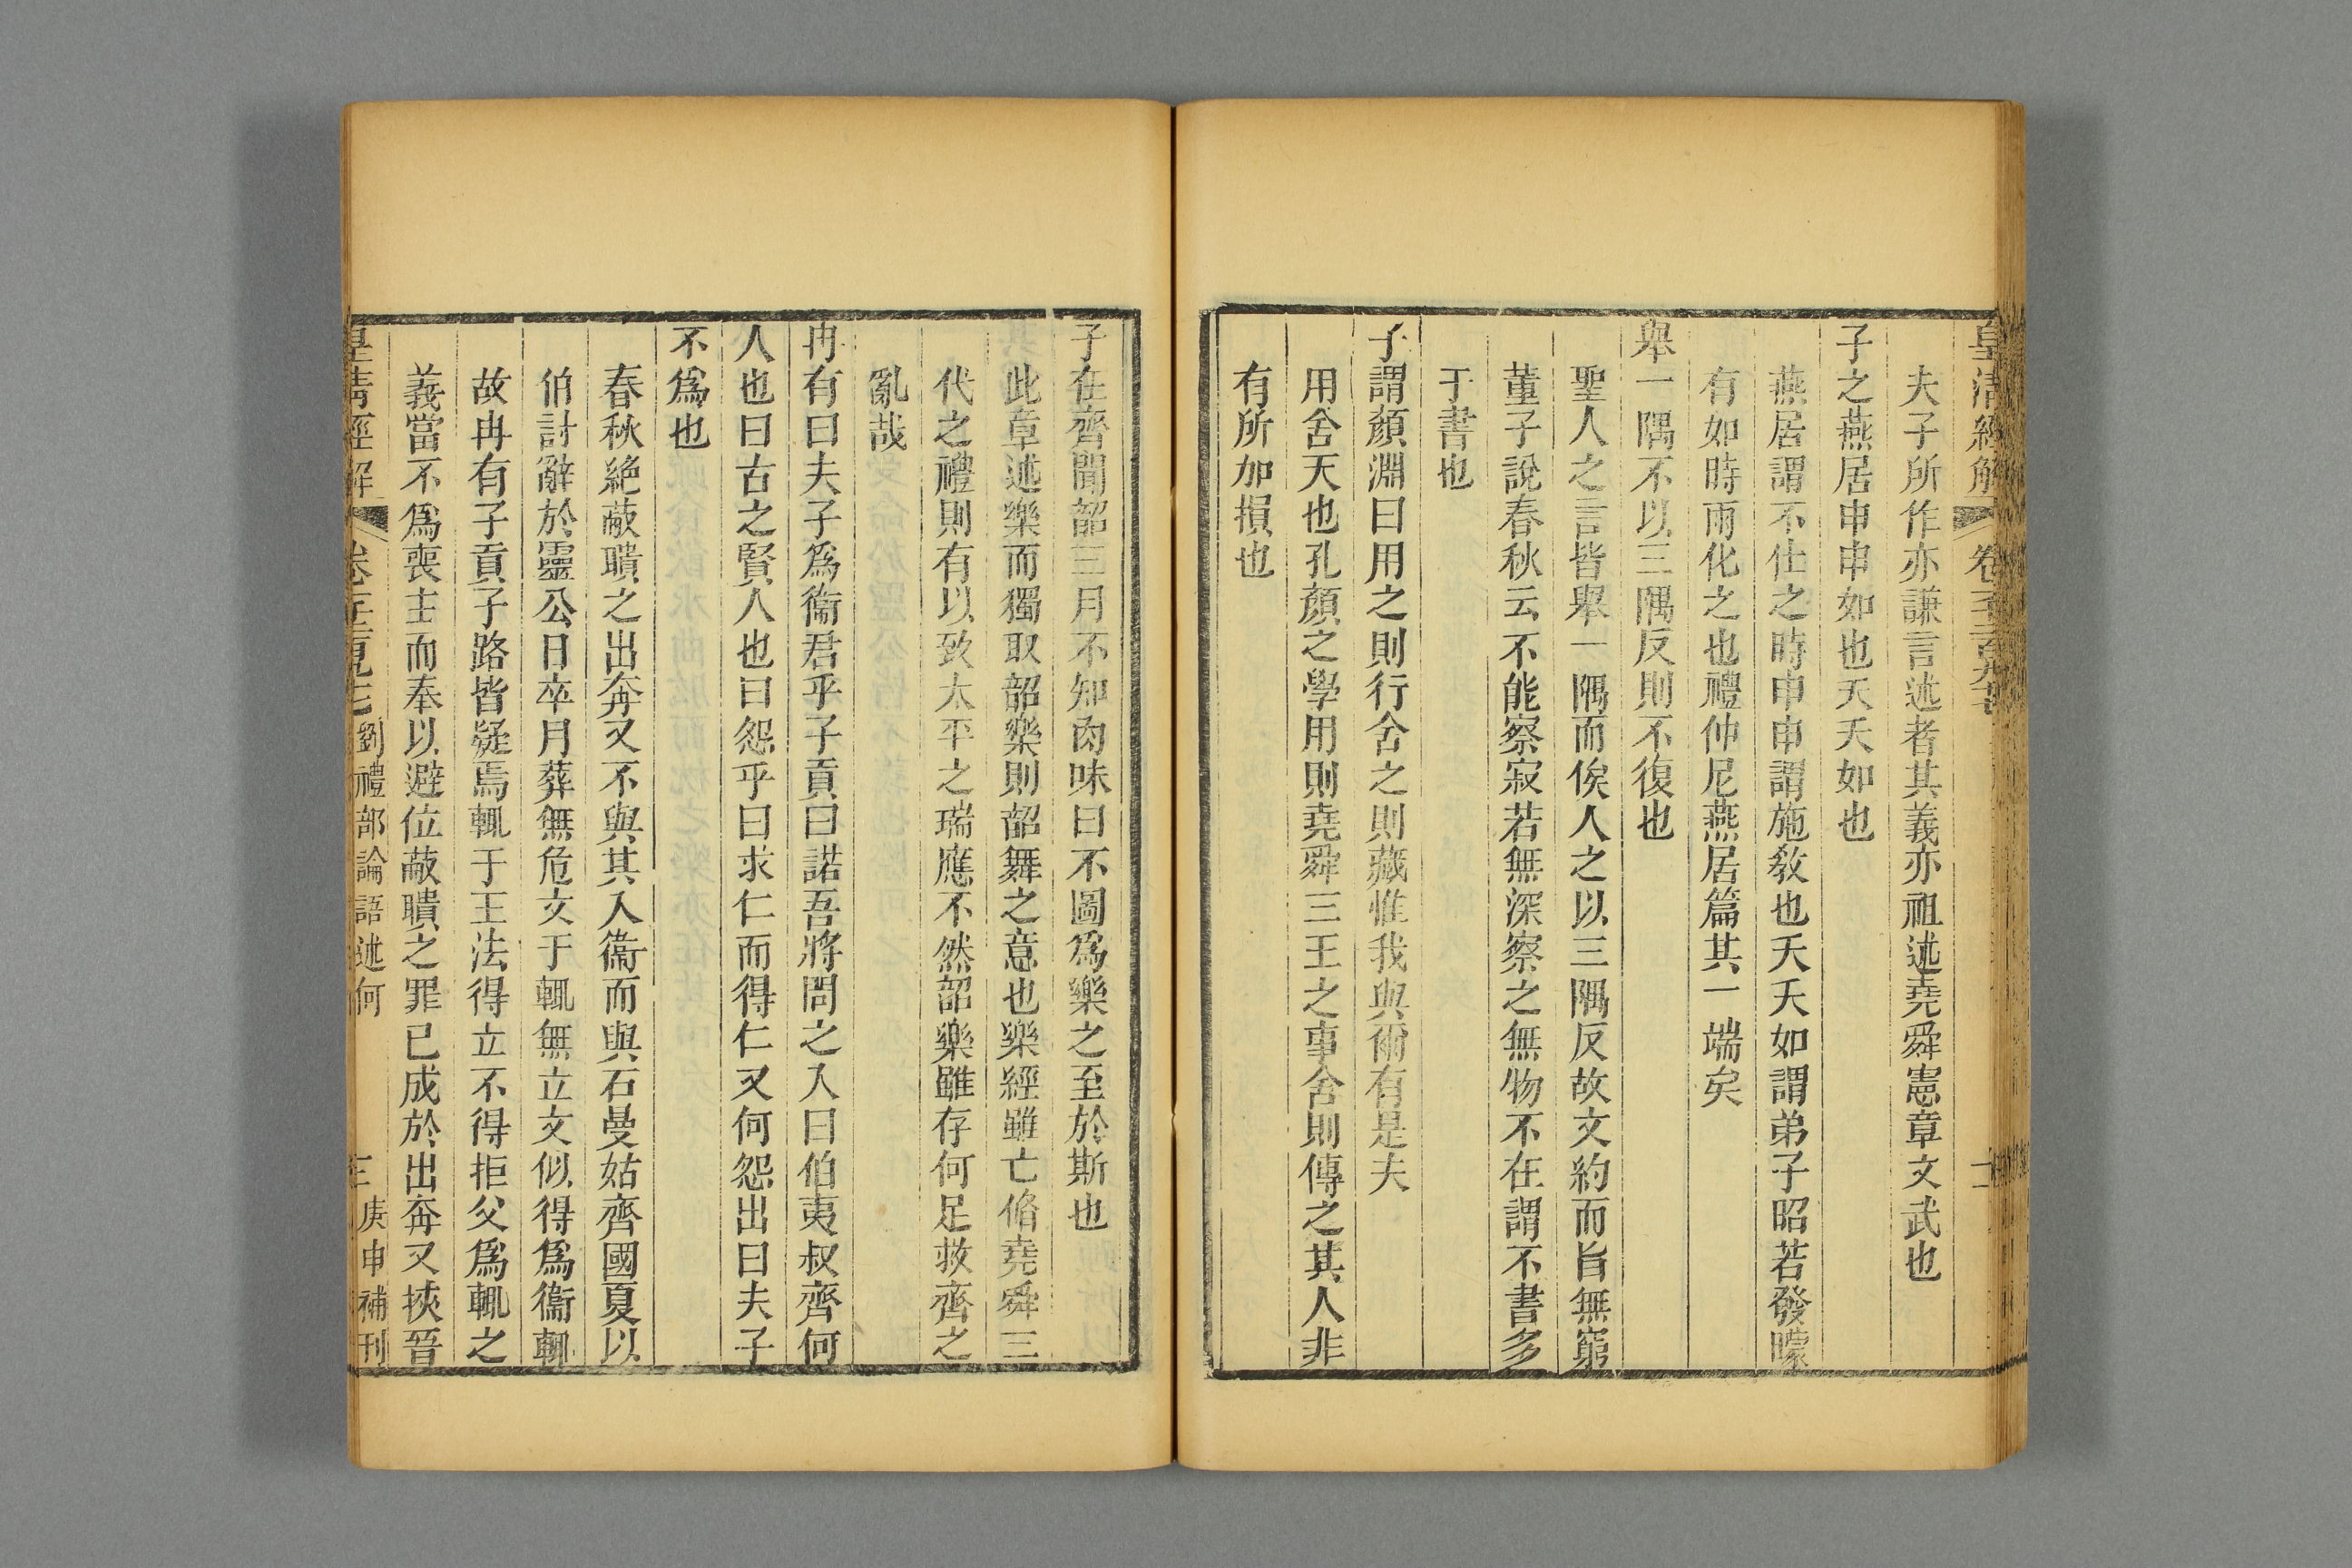 皇清經解 卷一千二百九十七 二
夫子所作亦謙言述者其義亦祖述堯舜憲章文武也
子之燕居申申如也夭夭如也
燕居謂不仕之時申申謂施教也夭夭如謂弟子昭若發矇
有如時雨化之也禮仲尼燕居篇其一端矣
舉一隅不以三隅反則不復也
聖人之言皆舉一隅而俟人之以三隅反故文約而旨無窮
董子說春秋云不能察寂若無深察之無物不在謂不書多
于書也
子謂顏淵曰用之則行舍之則藏惟我與爾有是夫
用舍天也孔顏之學用則堯舜三王之事舍則傳之其人非
有所加損也
子在齊聞韶三月不知肉味曰不圖爲樂之至於斯也
此章述樂而獨取韶樂則韶舞之意也樂經雖亡脩堯舜三
代之禮則有以致太平之瑞應不然韶樂雖存何足救齊之
亂哉
冉有曰夫子爲衞君乎子貢曰諾吾將問之入曰伯夷叔齊何
人也曰古之賢人也曰怨乎曰求仁而得仁又何怨出曰夫子
不爲也
春秋絕蒯聵之出奔又不與其入衞而與石曼姑齊國夏以
伯討辭於靈公日卒月葬無危文于輒無立文似得爲衞輒
故冉有子貢子路皆疑焉輒于王法得立不得拒父爲輒之
義當不爲喪主而奉以避位蒯聵之罪已成於出奔又挾晉
皇清經解 劉禮部論語述何 三 庚申補刊